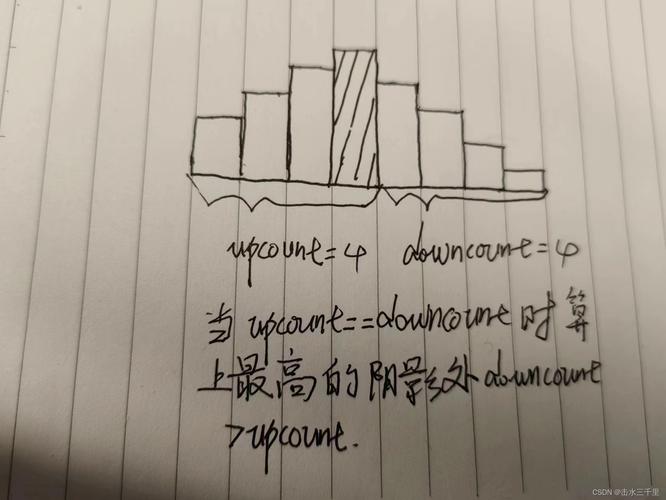 upcount=4 downcount=4
当 upcount==downcount时算
上最高的阴影处downcount
>upcount.
CSDN @击水三千里